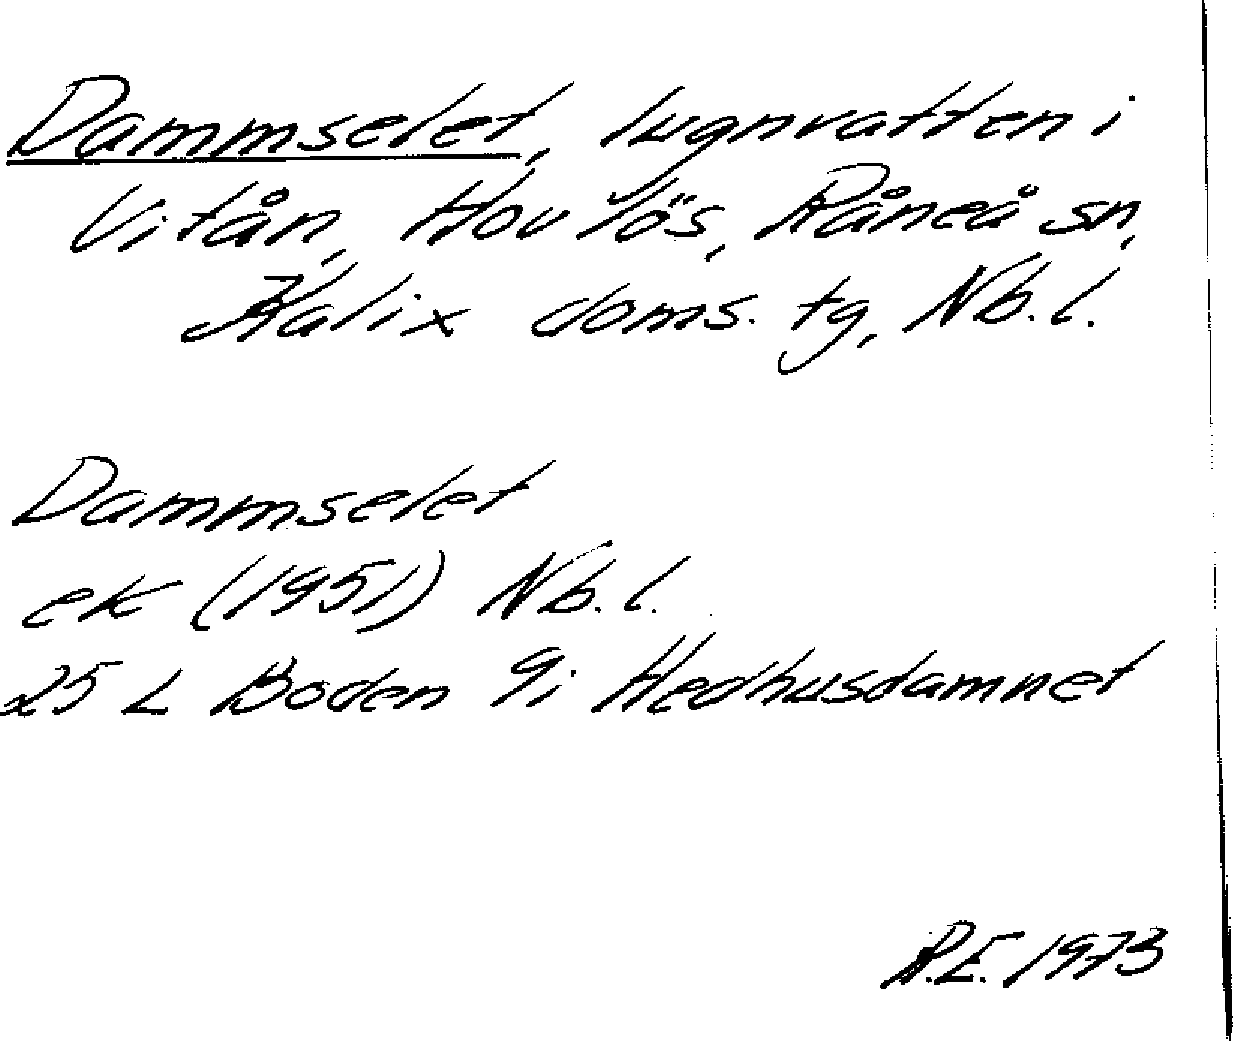 Dammselet, lugnvatten i
Vitån, Hovlös, Råneå sn,
Kalix doms. tg, Nb. l.
Dammselet
ek (1951) Nb. l.
25 L Boden 9i Hedhusdamnet
R.E. 1973